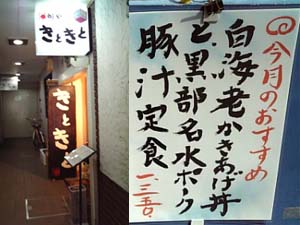 きときと
きときと
今月のおすすめ
白海老かきあげ丼
と黒部名水ポーク
豚汁定食
一、三五〇、